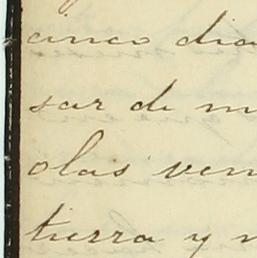 cinco dia
sar de m
olas ven
tierra y n